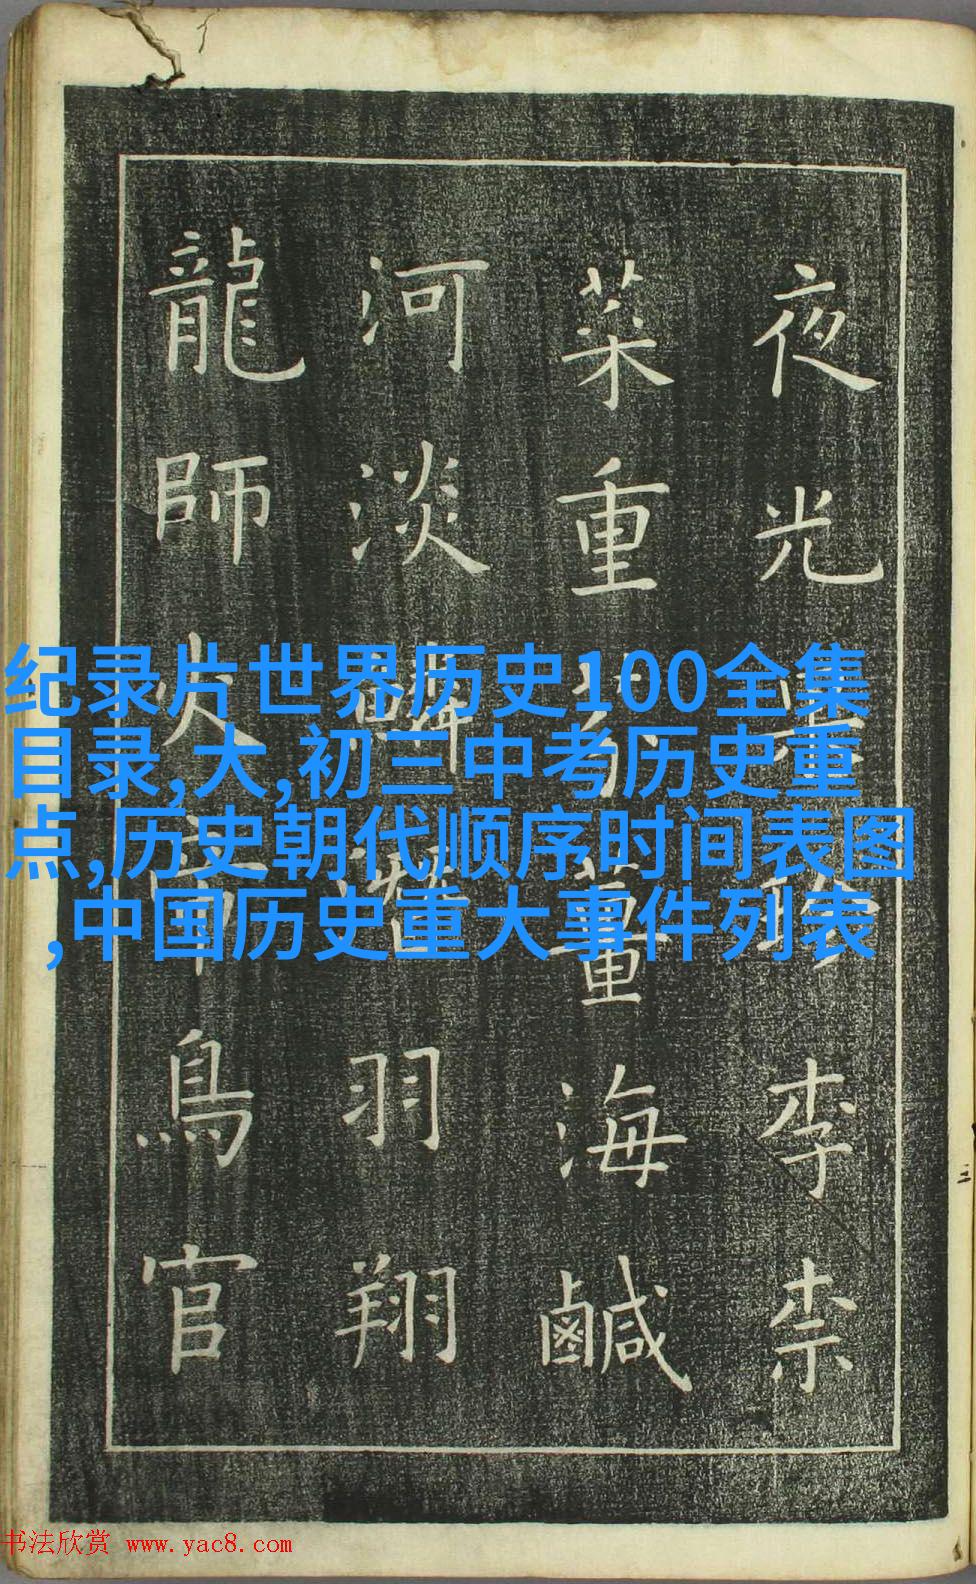 夜光果珍李柰
菜重芥薑海鹹
河淡鱗潛羽翔
龍師火帝鳥官
纪录片世界历史100全集
目录,大,初三中考历史重
点,历史朝代顺序时间表图
,中国历史重大事件列表
书法欣赏 www.yac8.com